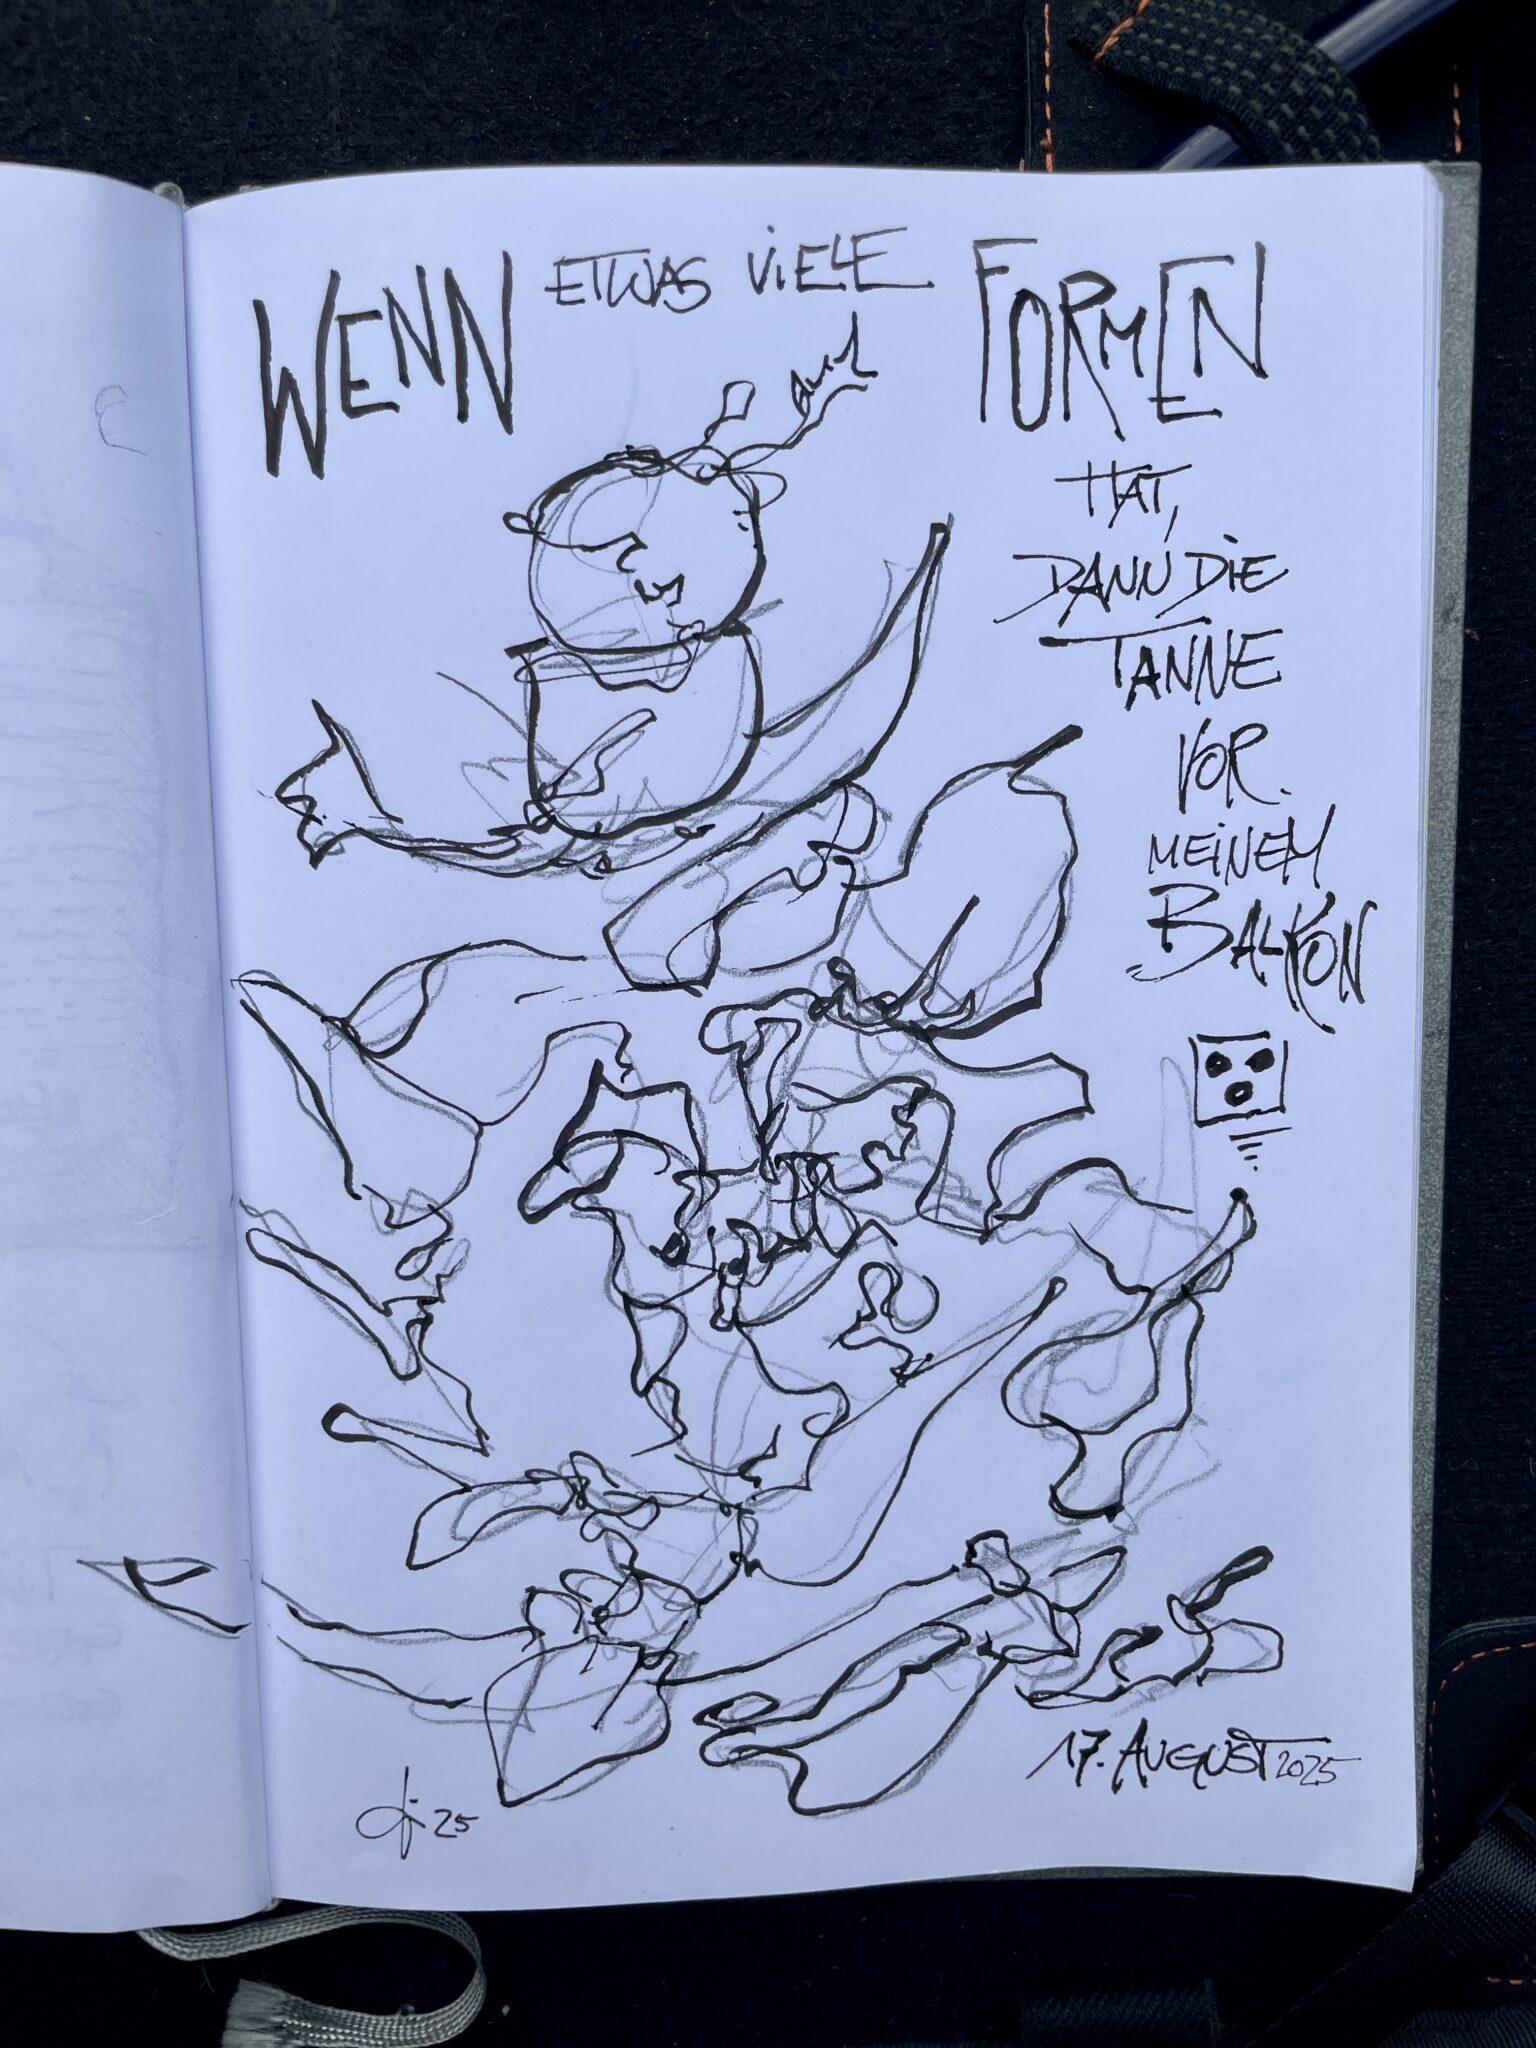 WENN ETWAS VIELE FORMEN
HAT,
DANN DIE
TANNE
VOR
MEINEM
BALKON
17. AUGUST 2025
25